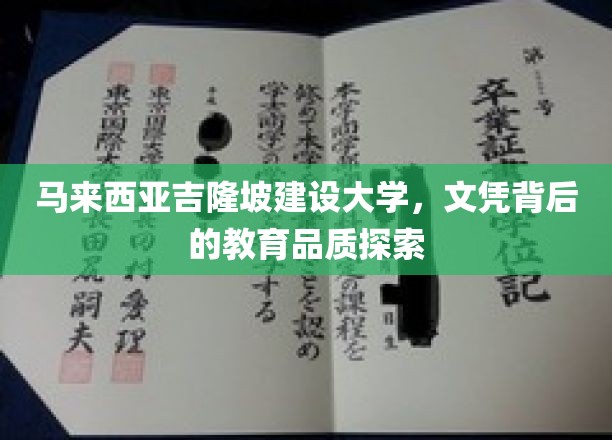 马来西亚吉隆坡建设大学，文凭背后
的教育品质探索
第 号
卒業証 学位記
本学商学 定の課程を
修めて本学 ことを認め
学士(商学)の する
平成
東京国際大学 田村愛理
東京国際大 長田尻嗣夫